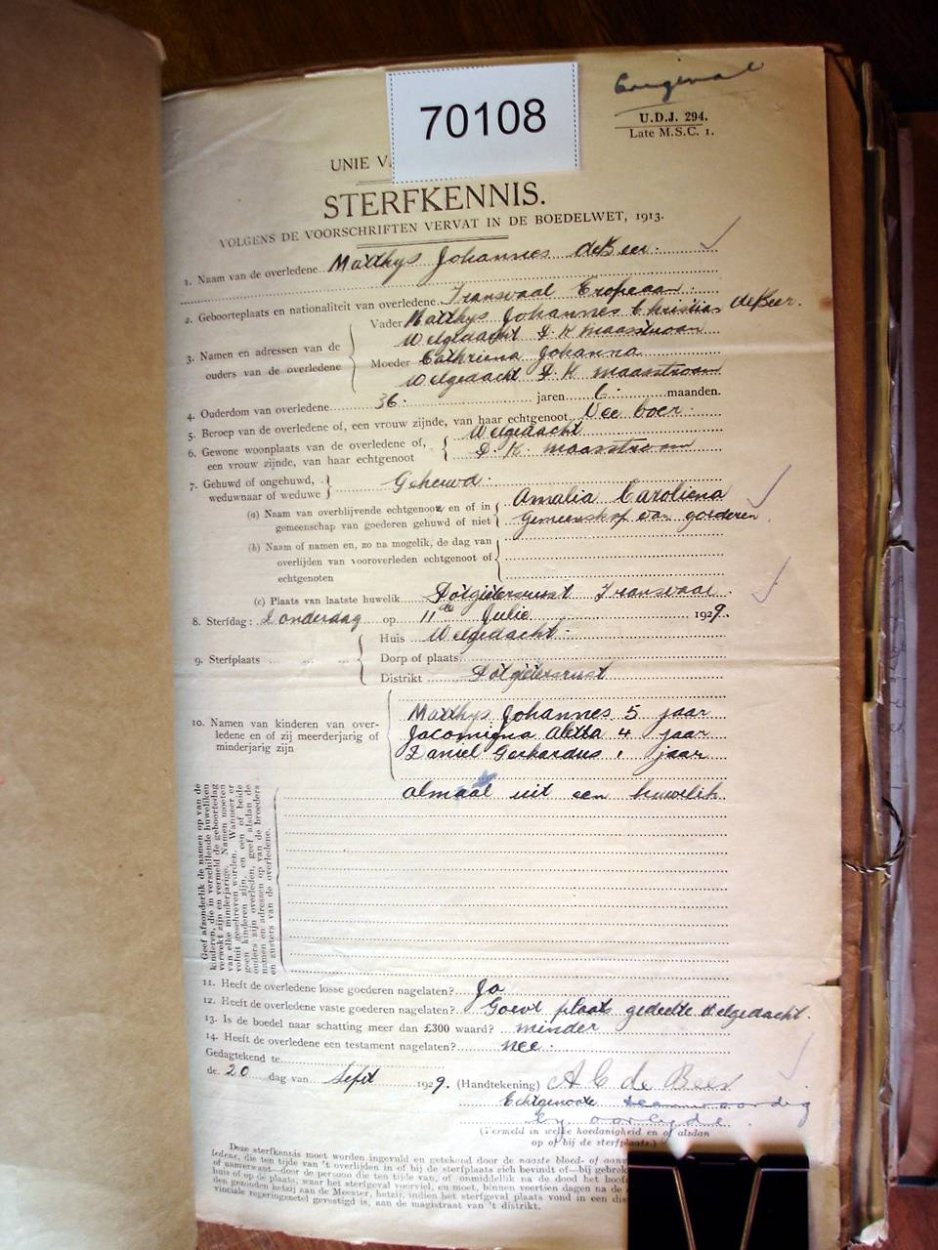 Original
70108
U.D.J. 294.
Late M.S.C. 1.
UNIE V
STERFKENNIS.
VOLGENS DE VOORSCHRIFTEN VERVAT IN DE BOEDELWET, 1913.
1. Naam van de overledene Matthys Johannes deBeer.
2. Geboorteplaats en nationaliteit van overledene. Transvaal Eropeaan.
3. Namen en adressen van de ouders van de overledene
Vader Matthys Johannes Christian deBeer.
Welgedacht P.K. maasstroom
Moeder Cathriena Johanna
Welgedacht P.K. maasstroom
4. Ouderdom van overledene 36. jaren 6 maanden.
5. Beroep van de overledene of, een vrouw zijnde, van haar echtgenoot Vee boer.
6. Gewone woonplaats van de overledene of, een vrouw zijnde, van haar echtgenoot
Welgedacht
P.K. maasstroom
7. Gehuwd of ongehuwd, weduwnaar of weduwe Geheuwd.
(a) Naam van overblijvende echtgenoot en of in gemeenschap van goederen gehuwd of niet
Amalia Caroliena
Gemeenskap van goederen
(b) Naam of namen en, zo na mogelik, de dag van
overlijden van vooroverleden echtgenoot of
echtgenoten
(c) Plaats van laatste huwelik Potgietersrust Transvaal
8. Sterfdag: Donderdag op 11de Julie 1929.
9. Sterfplaats
Huis Welgedacht.
Dorp of plaats
Distrikt Potgietersrust
10. Namen van kinderen van overledene en of zij meerderjarig of minderjarig zijn
Matthys Johannes 5 jaar
Jacomyna Aletta 4 jaar
Daniel Gerhardus 1 jaar
almaal uit een huwelik.
Geef afzonderlik de namen op van de
kinderen, die in verschillende huweliken
verwekt zijn en vermeld de geboortedag
van elke minderjarige. Namen moeten
voluit geschreven worden. Wanneer er
geen kinderen zijn, en een of beide
ouders zijn overleden, geef alsdan de
namen en adressen op van de broeders
en zusters van de overledene.
11. Heeft de overledene losse goederen nagelaten? Ja
12. Heeft de overledene vaste goederen nagelaten? plaats gedeelte Welgedacht.
13. Is de boedel naar schatting meer dan £300 waard? minder
14. Heeft de overledene een testament nagelaten? nee.
Gedagtekend te
de 20 dag van Sept 1929. (Handtekening) A C de Beer
Echtgenoote teenwoordig
by oorlyde.
(Vermeld in welke hoedanigheid en of alsdan
op of bij de sterfplaats.)
Deze sterfkennis moet worden ingevuld en getekend door de naaste bloed- of aanv
ledene, die ten tijde van 't overlijden in of bij de sterfplaats zich bevindt of—bij gebrek
of aanverwant—door de persoon die ten tijde van, of onmiddellik na de dood het hoof
huis of op de plaats, waar het sterfgeval voorviel, en moet, binnen veertien dagen na de
den gezonden hetzij aan de Meester, hetzij, indien het sterfgeval plaats vond in een dis
vinciale regeringszetel gevestigd is, aan de magistraat van 't distrikt.